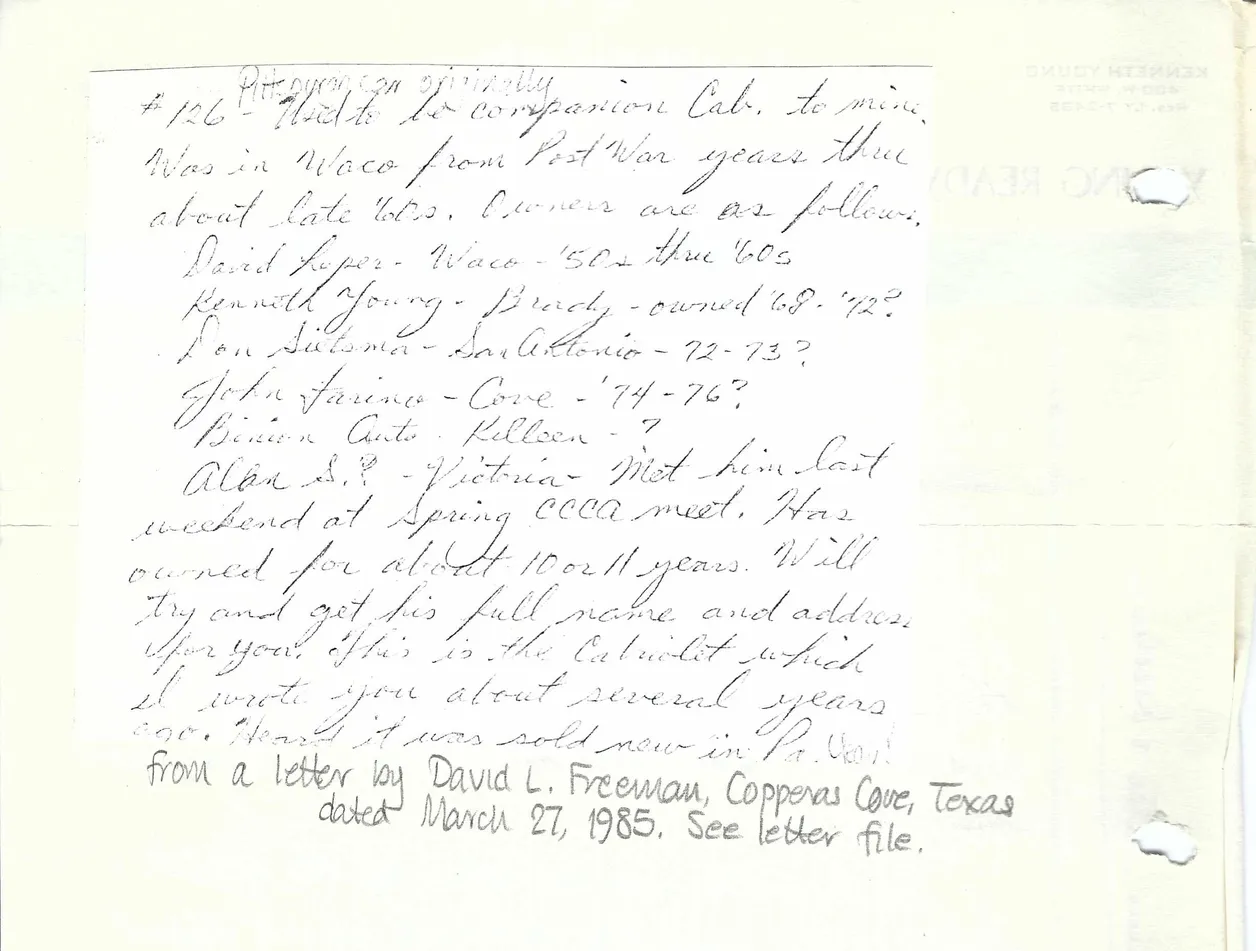 Pittsburgh car originally
#126 - Used to be companion Cab. to mine.
Was in Waco from Post War years thru
about late '60s. Owners are as follows.
David Loper - Waco - '50s thru '60s
Kenneth Young - Brady - owned '68 - '72?
Don Sietsma - San Antonio - 72-73?
John Farino - Cove - '74 - 76?
Binion Auto - Killeen - ?
Alan S.? - Victoria - Met him last
weekend at Spring CCCA meet. Has
owned for about 10 or 11 years. Will
try and get his full name and address
for you. This is the Cabriolet which
I wrote you about several years
ago. Heard it was sold new in Pa.
from a letter by David L. Freeman, Copperas Cove, Texas
dated March 27, 1985. See letter file.
KENNETH YOUNG
YOUNG READY